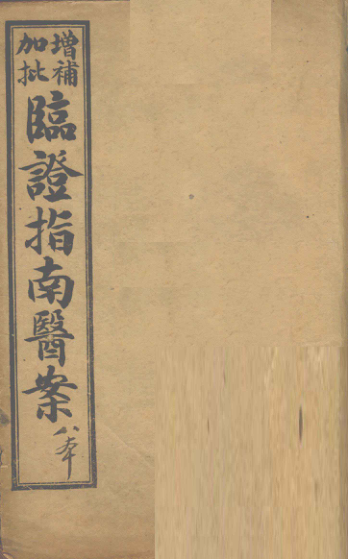 增補
加批
臨證指南醫案
八本